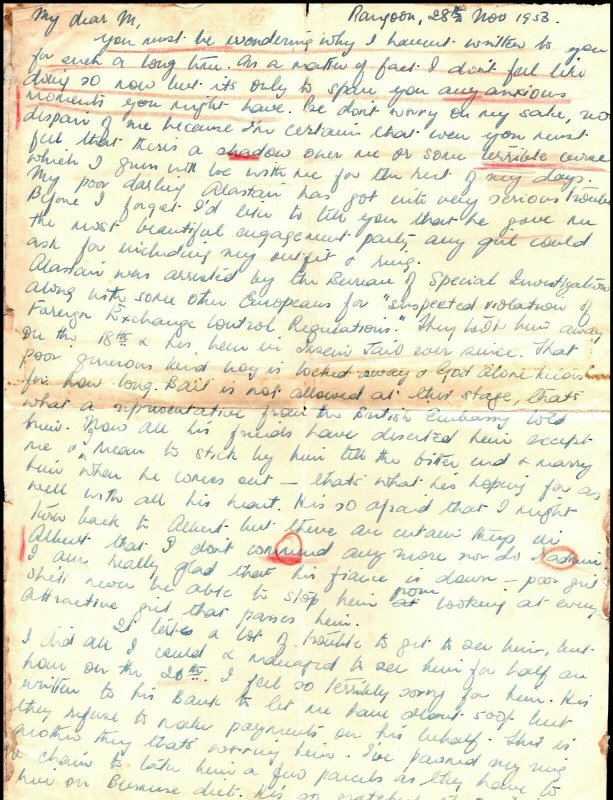 My dear M,
Rangoon, 28th Nov 1953.
You must be wondering why I havent written to you
for such a long time. As a matter of fact I don't feel like
doing so now but its only to spare you any anxious
moments you might have. Pse don't worry on my sake, nor
dispair of me because I'm certain that even you must
feel that there's a shadow over me or some terrible curse
which I guess will be with me for the rest of my days.
My poor darling Alastair has got into very serious trouble
Before I forget I'd like to tell you that he gave me
the most beautiful engagement party any girl could
ask for including my outfit & ring.
Alastair was arrested by the Bureau of Special Investigation
along with some other Europeans for "suspected violation of
Foreign Exchange Control Regulations." They took him away
on the 18th & hes been in Insein Jail ever since. That
poor generous kind boy is locked away & God Alone knows
for how long. Bail is not allowed at this stage, thats
what a representative from the British Embassy told
him. Now all his friends have deserted him except
me & I mean to stick by him till the bitter end & marry
him when he comes out — thats what hes hoping for as
well with all his heart. His so afraid that I might
turn back to Albert but there are certain things in
Albert that I don't commend any more nor do I admire
I am really glad that his fiance is down - poor girl
she'll never be able to stop him from looking at every
attractive girl that passes him.
It a lot of trouble to get to see him, but
I did all I could & managed to see him for half an
hour on the 20th. I feel so terribly sorry for him. His
written to his Bank to let me have about 500/- but
they refuse to make payments on his behalf. This is
another thing thats worrying him. I've pawned my ring
& chain to take him a few parcels as they have to
live on Burmese diet. His so grateful